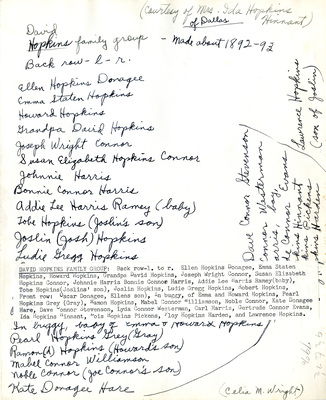 (Courtesy of Mrs. Ida Hopkins Hennant)
of Dallas
David
Hopkins family group - Made about 1892-93
Back row - l - r.
Allen Hopkins Donagee
Emma Staten Hopkins
Howard Hopkins
Grandpa David Hopkins
Joseph Wright Connor
Susan Elizabeth Hopkins Connor
Johnnie Harris
Bonnie Connor Harris
Addie Lee Harris Ramey (baby)
Tobe Hopkins (Joslin's son)
Joslin (Josh) Hopkins
Ludie Gregg Hopkins
DAVID HOPKINS FAMILY GROUP: Back row-l. to r. Ellen Hopkins Donagee, Emma Staten
Hopkins, Howard Hopkins, Grandpa David Hopkins, Joseph Wright Connor, Susan Elizabeth
Hopkins Connor, Johnnie Harris Bonnie Connor Harris, Addie Lee Harris Ramey(baby),
Tobe Hopkins(Joslins' son), Joslin Hopkins, Ludie Gregg Hopkins, Robert Hopkins,
Front row: Oscar Donagee, Ellens son), In buggy, of Emma and Howard Hopkins, Pearl
Hopkins Grey (Gray), Ramon Hopkins, Mabel Connor Williamson, Noble Connor, Kate Donagee
Hare, Dave Connor Stevenson, Lyda Connor Westerman, Carl Harris, Gertrude Connor Evans,
Ida Hopkins Hinnant, Hopkins Pickens, Floy Hopkins Harden, and Lawrence Hopkins.
In buggy, baby of Emma & Howard Hopkins
Pearl Hopkins Grey (Gray)
Ramon(A) Hopkins (Howard's son)
Mabel Connor Williamson
Noble Connor (Joe Connor's son)
Kate Donagee Hare
Dave Connor Stevenson
Connor Westerman
Harris, boy
Connor Evans
Hinnant
Harden
Lawrence Hopkins
(son of Joslin)
(Celia M. Wright)